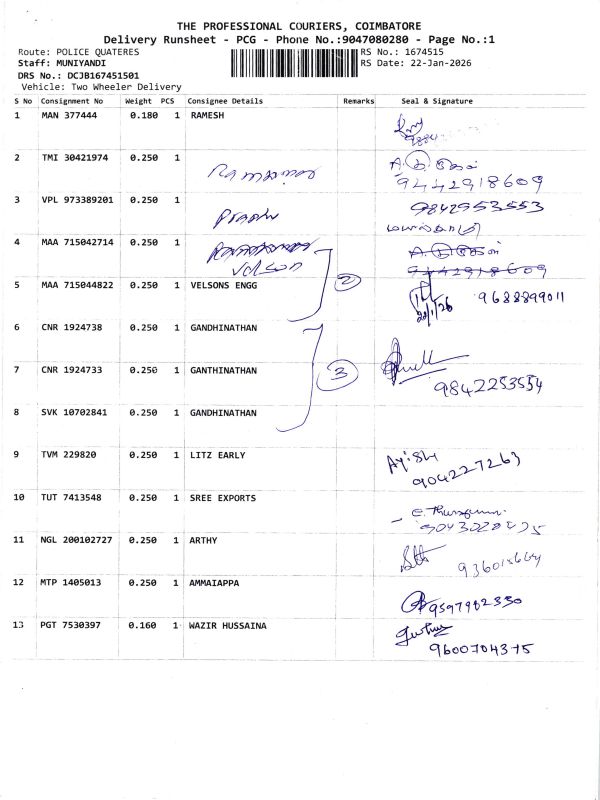 THE PROFESSIONAL COURIERS, COIMBATORE
Delivery Runsheet - PCG - Phone No.:9047080280 - Page No.:1
Route: POLICE QUATERES RS No.: 1674515
Staff: MUNIYANDI RS Date: 22-Jan-2026
DRS No.: DCJB167451501
Vehicle: Two Wheeler Delivery
S No Consignment No Weight PCS Consignee Details Remarks Seal & Signature
1 MAN 377444 0.180 1 RAMESH
2 TMI 30421974 0.250 1
9442918609
3 VPL 973389201 0.250 1 9842953553
4 MAA 715042714 0.250 1
Velson 9442918609
5 MAA 715044822 0.250 1 VELSONS ENGG 2 9688899011
6 CNR 1924738 0.250 1 GANDHINATHAN
7 CNR 1924733 0.250 1 GANTHINATHAN 3
9842253554
8 SVK 10702841 0.250 1 GANDHINATHAN
9 TVM 229820 0.250 1 LITZ EARLY
904227263
10 TUT 7413548 0.250 1 SREE EXPORTS
11 NGL 200102727 0.250 1 ARTHY
12 MTP 1405013 0.250 1 AMMAIAPPA
9597982330
13 PGT 7530397 0.160 1 WAZIR HUSSAINA
9600704375